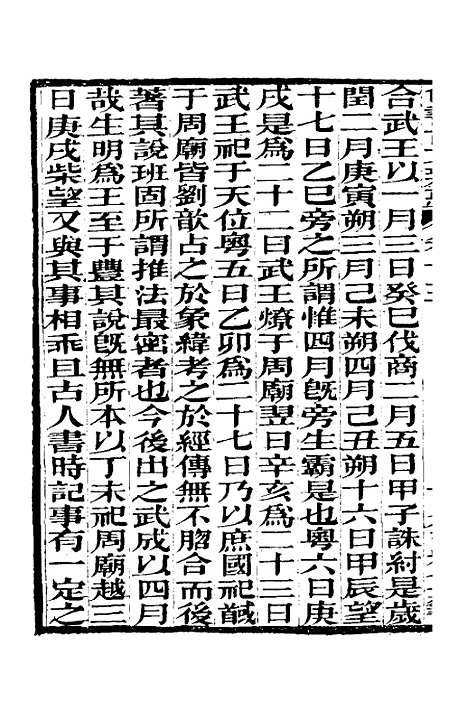 合武王以一月三日癸巳伐商二月五日甲子誅紂是歲
閏二月庚寅朔三月己未朔四月己丑朔十六日甲辰望
十七日乙巳旁之所謂惟四月旣旁生霸是也粵六日庚
戌是爲二十二日武王燎于周廟翌日辛亥爲二十三日
武王祀于天位粵五日乙卯爲二十七日乃以庶國祀馘
于周廟皆劉歆占之於象緯考之於經傳無不脗合而後
著其說班固所謂推法最密者也今後出之武成以四月
哉生明爲王至于豐其說旣無所本以丁未祀周廟越三
日庚戌柴望又與其事相乖且古人書時記事有一定之